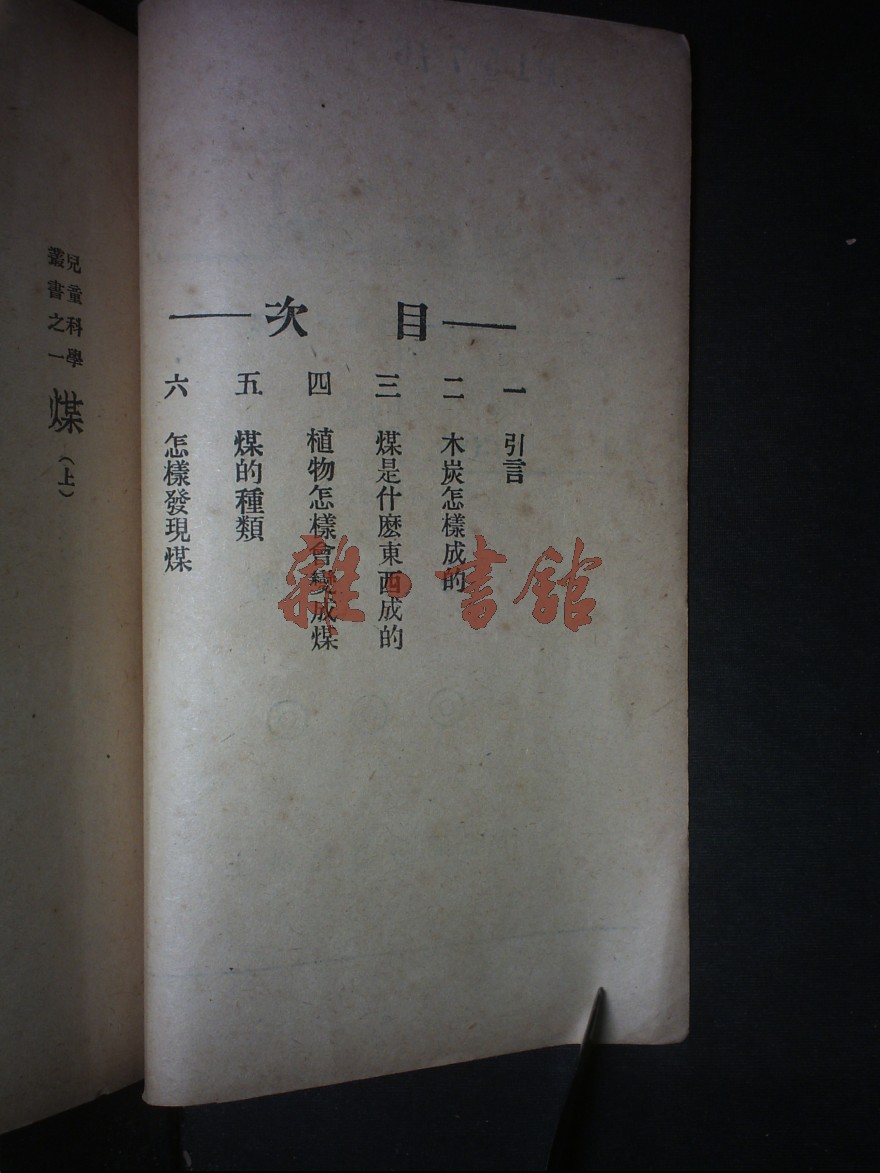 目次
一 引言
二 木炭怎樣成的
三 煤是什麽東西成的
四 植物怎樣會變成煤
五 煤的種類
六 怎樣發現煤
兒童科學
叢書之一
煤(上)
雜·書館